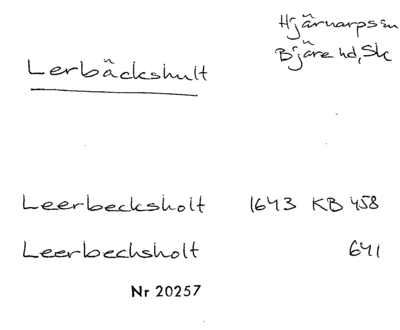 Hjärnarps sn
Bjäre hd, Sk
Lerbäckshult
Leerbecksholt 1643 KB 458
Leerbechsholt 641
Nr 20257